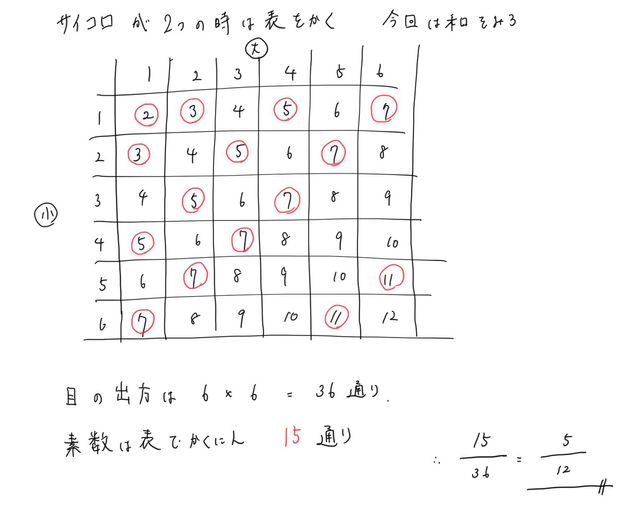 サイコロ が 2つ の 時 は 表 を かく 今回 は 和 を みる
大
1 2 3 4 5 6
1 2 3 4 5 6 7
2 3 4 5 6 7 8
3 4 5 6 7 8 9
小
4 5 6 7 8 9 10
5 6 7 8 9 10 11
6 7 8 9 10 11 12
目 の 出方 は 6 × 6 = 36 通り.
素数 は 表 で かくにん 15 通り
∴ 15/36 = 5/12